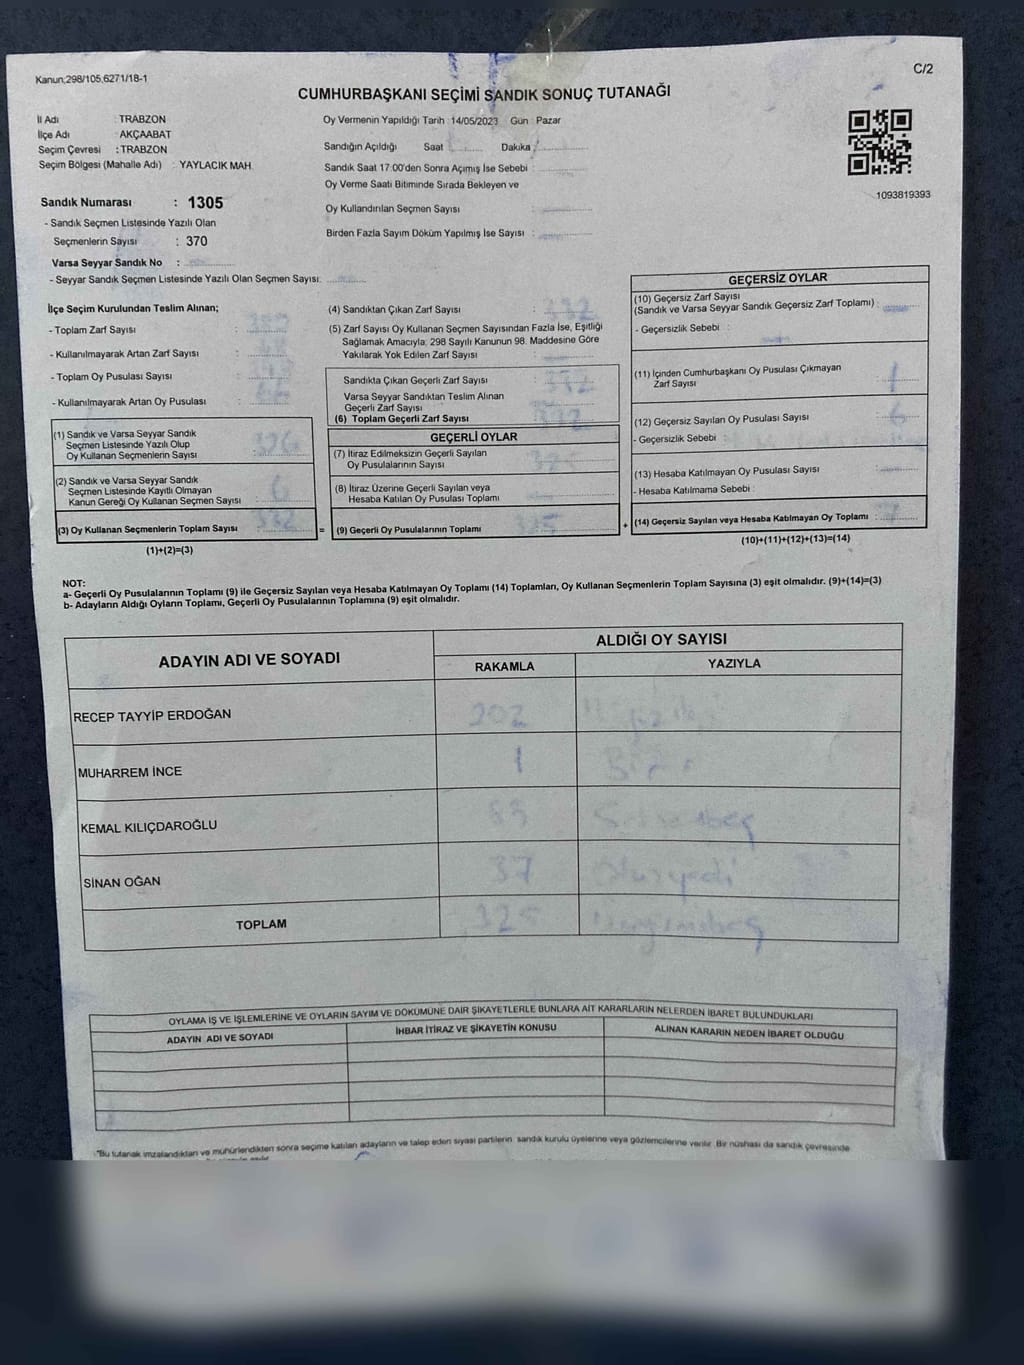 Kanun;298/105,6271/18-1
C/2
CUMHURBAŞKANI SEÇİMİ SANDIK SONUÇ TUTANAĞI
İl Adı : TRABZON
İlçe Adı : AKÇAABAT
Seçim Çevresi : TRABZON
Seçim Bölgesi (Mahalle Adı) : YAYLACIK MAH.
Sandık Numarası : 1305
- Sandık Seçmen Listesinde Yazılı Olan
Seçmenlerin Sayısı : 370
Varsa Seyyar Sandık No :
- Seyyar Sandık Seçmen Listesinde Yazılı Olan Seçmen Sayısı:
Oy Vermenin Yapıldığı Tarih :14/05/2023 Gün : Pazar
Sandığın Açıldığı Saat Dakika
Sandık Saat 17:00'den Sonra Açımış İse Sebebi :
Oy Verme Saati Bitiminde Sırada Bekleyen ve
Oy Kullandırılan Seçmen Sayısı :
Birden Fazla Sayım Döküm Yapılmış İse Sayısı :
1093819393
İlçe Seçim Kurulundan Teslim Alınan;
- Toplam Zarf Sayısı :
- Kullanılmayarak Artan Zarf Sayısı :
- Toplam Oy Pusulası Sayısı :
- Kullanılmayarak Artan Oy Pusulası :
(1) Sandık ve Varsa Seyyar Sandık
Seçmen Listesinde Yazılı Olup
Oy Kullanan Seçmenlerin Sayısı : 326
(2) Sandık ve Varsa Seyyar Sandık
Seçmen Listesinde Kayıtlı Olmayan
Kanun Gereği Oy Kullanan Seçmen Sayısı : 6
(3) Oy Kullanan Seçmenlerin Toplam Sayısı : 332
(1)+(2)=(3)
(4) Sandıktan Çıkan Zarf Sayısı : 332
(5) Zarf Sayısı Oy Kullanan Seçmen Sayısından Fazla İse, Eşitliği
Sağlamak Amacıyla; 298 Sayılı Kanunun 98. Maddesine Göre
Yakılarak Yok Edilen Zarf Sayısı :
Sandıkta Çıkan Geçerli Zarf Sayısı : 332
Varsa Seyyar Sandıktan Teslim Alınan
Geçerli Zarf Sayısı :
(6) Toplam Geçerli Zarf Sayısı : 332
GEÇERLİ OYLAR
(7) İtiraz Edilmeksizin Geçerli Sayılan
Oy Pusulalarının Sayısı : 325
(8) İtiraz Üzerine Geçerli Sayılan veya
Hesaba Katılan Oy Pusulası Toplamı :
= (9) Geçerli Oy Pusulalarının Toplamı : 325
GEÇERSİZ OYLAR
(10) Geçersiz Zarf Sayısı
(Sandık ve Varsa Seyyar Sandık Geçersiz Zarf Toplamı) :
- Geçersizlik Sebebi :
(11) İçinden Cumhurbaşkanı Oy Pusulası Çıkmayan
Zarf Sayısı : 1
(12) Geçersiz Sayılan Oy Pusulası Sayısı : 6
- Geçersizlik Sebebi :
(13) Hesaba Katılmayan Oy Pusulası Sayısı :
- Hesaba Katılmama Sebebi :
+ (14) Geçersiz Sayılan veya Hesaba Katılmayan Oy Toplamı : 7
(10)+(11)+(12)+(13)=(14)
NOT:
a- Geçerli Oy Pusulalarının Toplamı (9) ile Geçersiz Sayılan veya Hesaba Katılmayan Oy Toplamı (14) Toplamları, Oy Kullanan Seçmenlerin Toplam Sayısına (3) eşit olmalıdır. (9)+(14)=(3)
b- Adayların Aldığı Oyların Toplamı, Geçerli Oy Pusulalarının Toplamına (9) eşit olmalıdır.
ADAYIN ADI VE SOYADI
ALDIĞI OY SAYISI
RAKAMLA YAZIYLA
RECEP TAYYİP ERDOĞAN 202
MUHARREM İNCE 1 Bir
KEMAL KILIÇDAROĞLU 85 Seksenbeş
SİNAN OĞAN 37 Otuzyedi
TOPLAM 325
OYLAMA İŞ VE İŞLEMLERİNE VE OYLARIN SAYIM VE DÖKÜMÜNE DAİR ŞİKAYETLERLE BUNLARA AİT KARARLARIN NELERDEN İBARET BULUNDUKLARI
ADAYIN ADI VE SOYADI İHBAR İTİRAZ VE ŞİKAYETİN KONUSU ALINAN KARARIN NEDEN İBARET OLDUĞU
"Bu tutanak imzalandıktan ve mühürlendikten sonra seçime katılan adayların ve talep eden siyasi partilerin sandık kurulu üyelerine veya gözlemcilerine verilir. Bir nüshası da sandık çevresinde